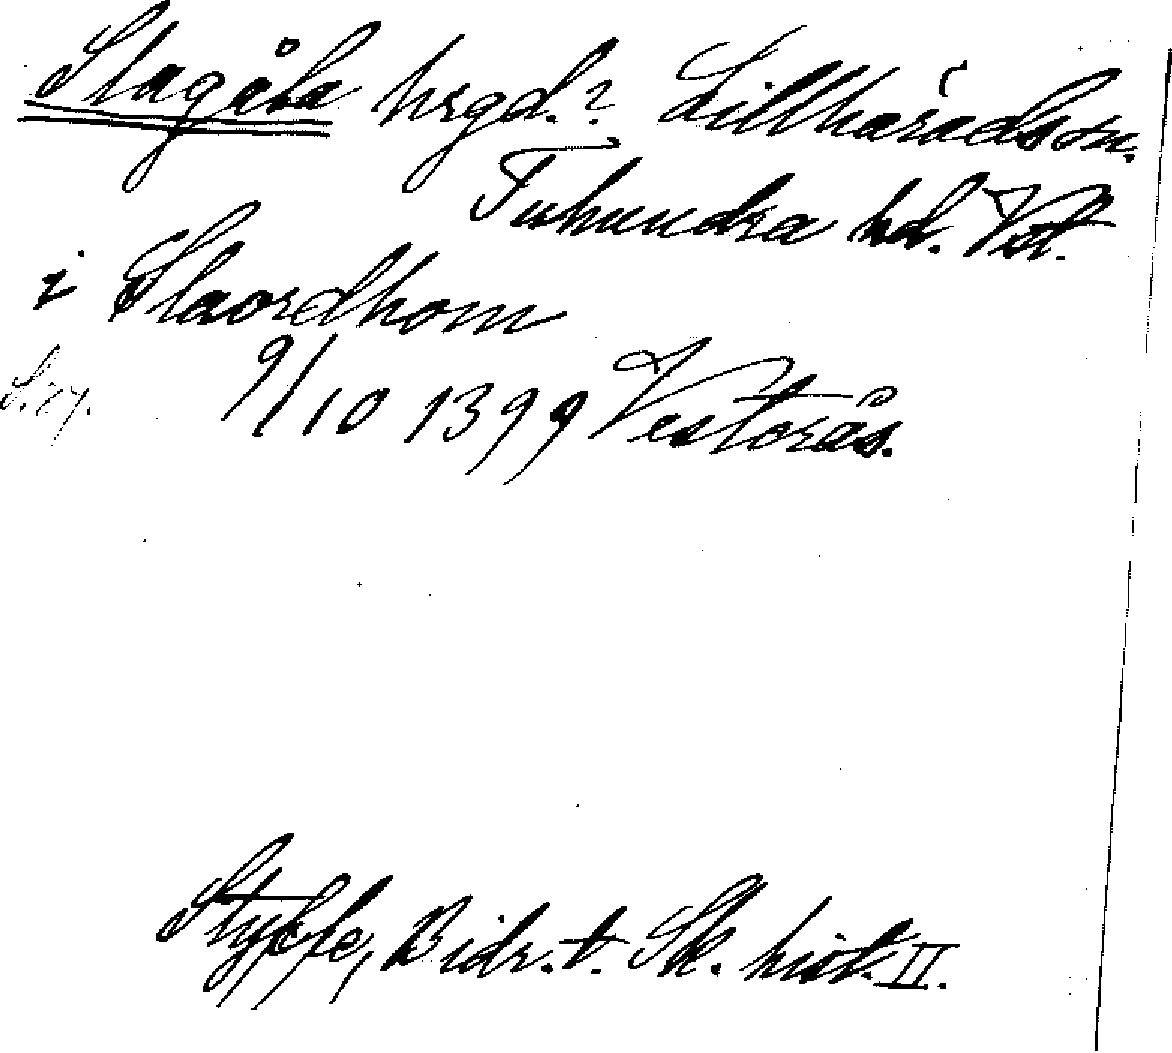 Slagåla hrgd.? Lillhärads sn.
Tuhundra hd. Vstl.
i Slaordhom
S. 27. 9/10 1399 Vesterås.
Styffe, Bidr. t. Sk. hist. II.